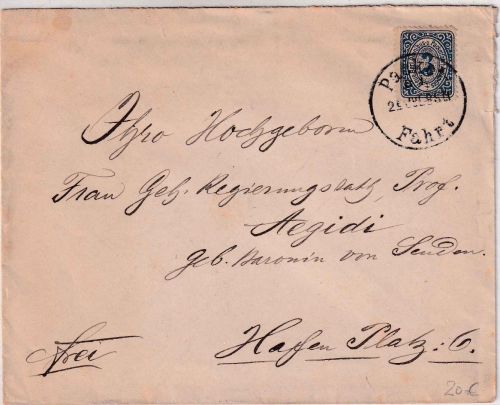 3
Fahrt
Ihro Hochgeboren
Frau Geh. Regierungsrath, Prof.
Aegidi
geb. Baronin von Senden.
Hafen Platz: 6.
frei
20 €